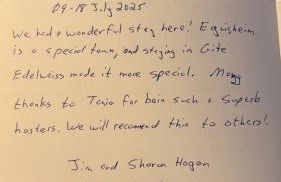 09-18 July 2025
We had a wonderful stay here! Eguisheim
is a special town, and staying in Gite
Edelweiss made it more special. Many
thanks to Tania for bein such a superb
hosters. We will recomend this to others!
Jim and Sharon Hogan